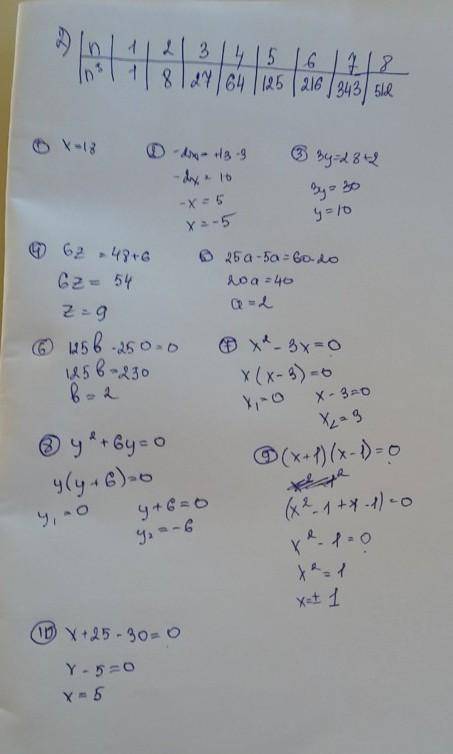 2) | n | 1 | 2 | 3 | 4 | 5 | 6 | 7 | 8
| n³ | 1 | 8 | 27 | 64 | 125 | 216 | 343 | 512
① x=13 ② -2x=+13-3 ③ 3y=28+2
-2x=10 3y=30
-x=5 y=10
x=-5
④ 6z=48+6 ⑤ 25a-5a=60-20
6z=54 20a=40
z=9 a=2
⑥ 125b-250=0 ⑦ x²-3x=0
125b=230 x(x-3)=0
b=2 x₁=0 x-3=0
x₂=3
⑧ y²+6y=0 ⑨ (x+1)(x-1)=0
y(y+6)=0 (x²-1+x-1)=0
y₁=0 y+6=0 x²-1=0
y₂=-6 x²=1
x=±1
⑩ x+25-30=0
x-5=0
x=5